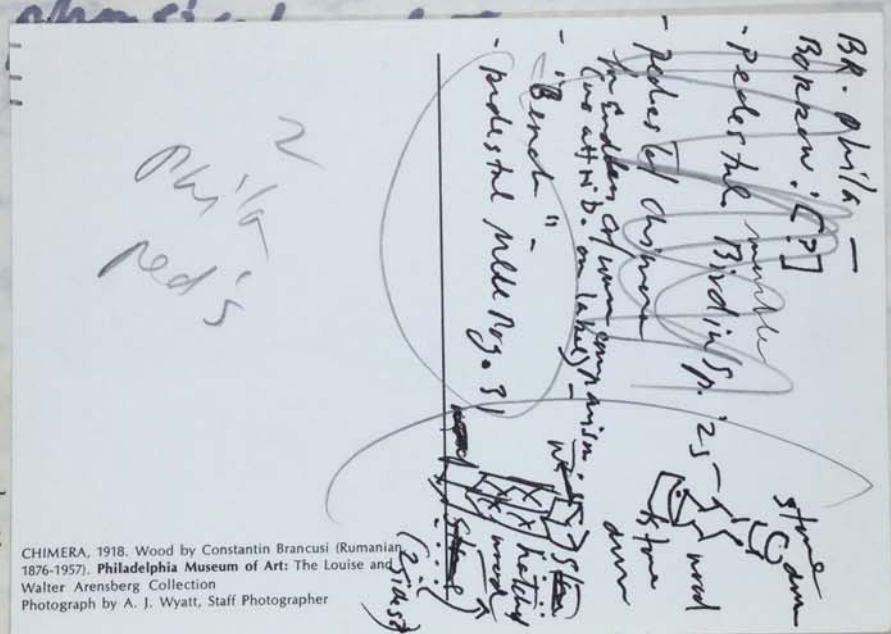 BR. Phila —
Borrow: [?]
- Pedestal Bird in Sp. '25 -
marble
- Pedestal chimera
for Endless column comparison
(no attrib. on label) -
- "Bench" -
- pedestal Mlle Pog. 3)
stone
wood
stone
wood
2
Phila
ped's
CHIMERA, 1918. Wood by Constantin Brancusi (Rumanian,
1876-1957). Philadelphia Museum of Art: The Louise and
Walter Arensberg Collection
Photograph by A. J. Wyatt, Staff Photographer